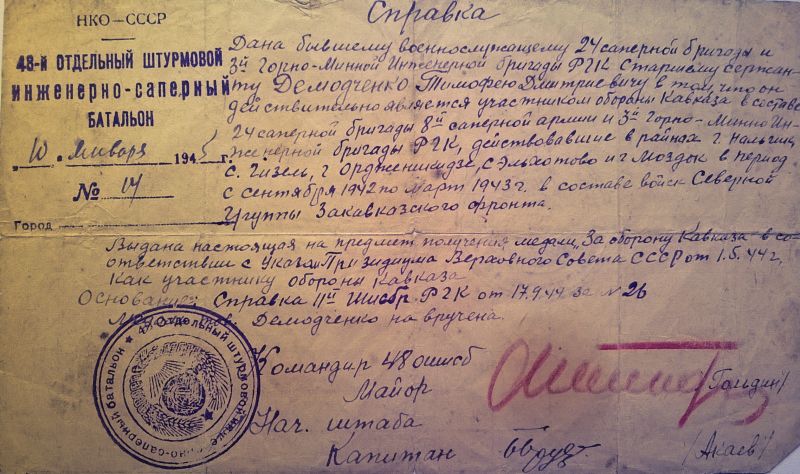 НКО — СССР
48-й ОТДЕЛЬНЫЙ ШТУРМОВОЙ
ИНЖЕНЕРНО-САПЕРНЫЙ
БАТАЛЬОН
„10„ Января 1945 г.
№ 17
Город
Справка
Дана бывшему военнослужащему 24 саперной бригады и
3й Горно-Минной Инженерной бригады РГК Старшему сержан-
ту Демодченко Тимофею Дмитриевичу в том что он
действительно является участником обороны Кавказа в составе
24 саперной бригады 8й саперной армии и 3й Горно-Минно Ин-
женерной бригады РГК, действовавшие в районах г. Нальчик
с. Гизель, г Орджоникидзе, с Эльхотово и г Моздок в период
с сентября 1942 по март 1943 г. в составе войск Северной
группы Закавказского фронта.
Выдана настоящая на предмет получения медали „За оборону Кавказа" в со-
ответствии с Указом Призидиума Верховного Совета СССР от 1.5.44 г,
как участнику обороны Кавказа
Основание: Справка 11й Шисбр РГК от 17.9.44 за №26
Демодченко на вручена.
Командир 48 ошисб
Майор
Голдин/
Нач. штаба
Капитан
/Акаев/
48-й ОТДЕЛЬНЫЙ ШТУРМОВОЙ инженерно-саперный батальон